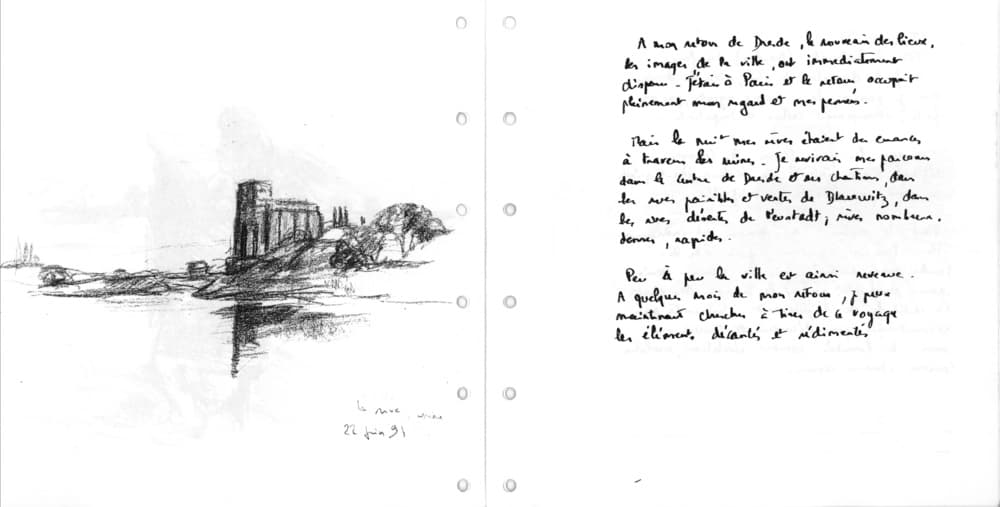 la rive,
22 juin 91
A mon retour de Dresde, le souvenir des lieux,
les images de la ville, ont immédiatement
disparu. J'étais à Paris et le retour occupait
pleinement mon regard et mes pensées.
Mais la nuit mes rêves étaient des errances
à travers des ruines. Je suivais mes parcours
dans le centre de Dresde et ses chantiers, dans
les rues paisibles et vertes de Blasewitz, dans
les rues désertes de Neustadt; rêves nombreux,
denses, rapides.
Peu à peu la ville est ainsi revenue.
A quelques mois de mon retour, je peux
maintenant chercher à tirer de ce voyage
les éléments décantés et sédimentés